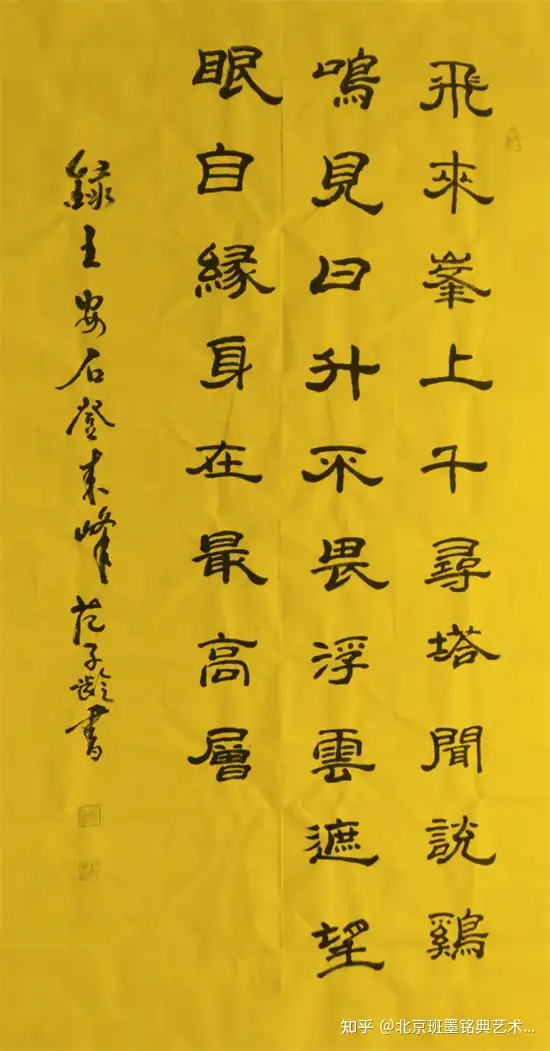 飛來峯上千尋塔聞說鷄
鳴見日升不畏浮雲遮望
眼自緣身在最高層
錄王安石登来峰范子齡書
知乎 @北京班墨铭典艺术...